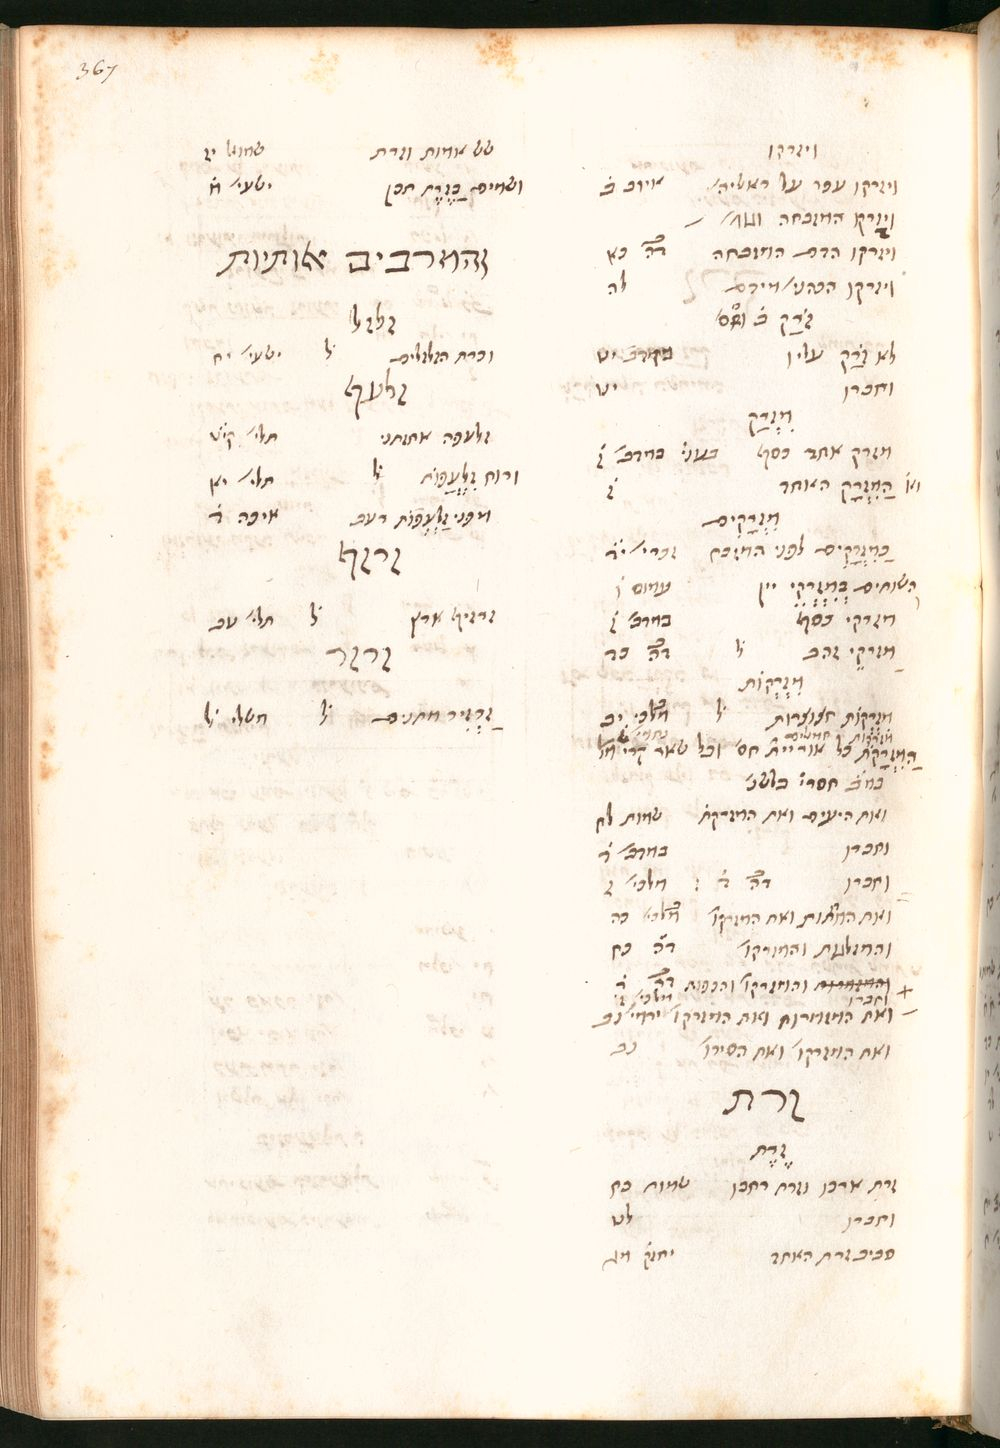 367
ויזרקו
ויזרקו עפר על ראשיה׳ איוב ב
ויזרקו המזבחה
ויזרקו הדם המזבחה דה כט
ויזרקו הכהני׳ מידם לה
זרק ב
לא זרק עליו במדב׳ יט
וחברו יט
מזרק
מזרק אחד כסף במדב׳ ז
המזרק האחד ז
מזרקים
כמזרקים לפני המזבח זכרי׳ יד
השותים במזרקי יין עמוס ו
מזרקי כסף במדב׳ ז
מזרקי זהב ל דה כד
מזרקות
מזרקות חצוצרות ל מלכי׳ יב
המזרקת כל אוריית חס׳ וכל שאר קרי׳ מל
חסרי׳
ואת היעים ואת המזרקת שמות לח
וחברו במדב׳ ד
וחברו דה ד : מלכי׳ ז
ואת המחתות ואת המזרקו׳ מלכי׳ כה
והמזלגות והמזרקו׳ דה כח
והמזמרות והמזרקו׳ והכפות דה ד
וחברו מלכי׳ ז
ואת המזמרות ואת המזרקו׳ ירמי׳ נב
ואת המזרקו׳ ואת הסירו׳ נב
זרת
זרת
זרת ארכו וזרת רחבו שמות כח
וחברו לט
סביב זרת האחד יחזק׳ מג
שש אמות וזרת שמוא׳ יז
ושמים בזרת תכן ישעי׳ מ
והמרבים אותיות
זלזל
וכרת הזלזלים ל ישעי׳ יח
זלעף
זלעפה אחזתני תלי׳ קיט
ורוח זלעפות ל תלי׳ יא
מפני זלעפות רעב איכה ה
זרזף
זרזיף ארץ ל תלי׳ עב
זרזר
זרזיר מתנים ל משלי ל